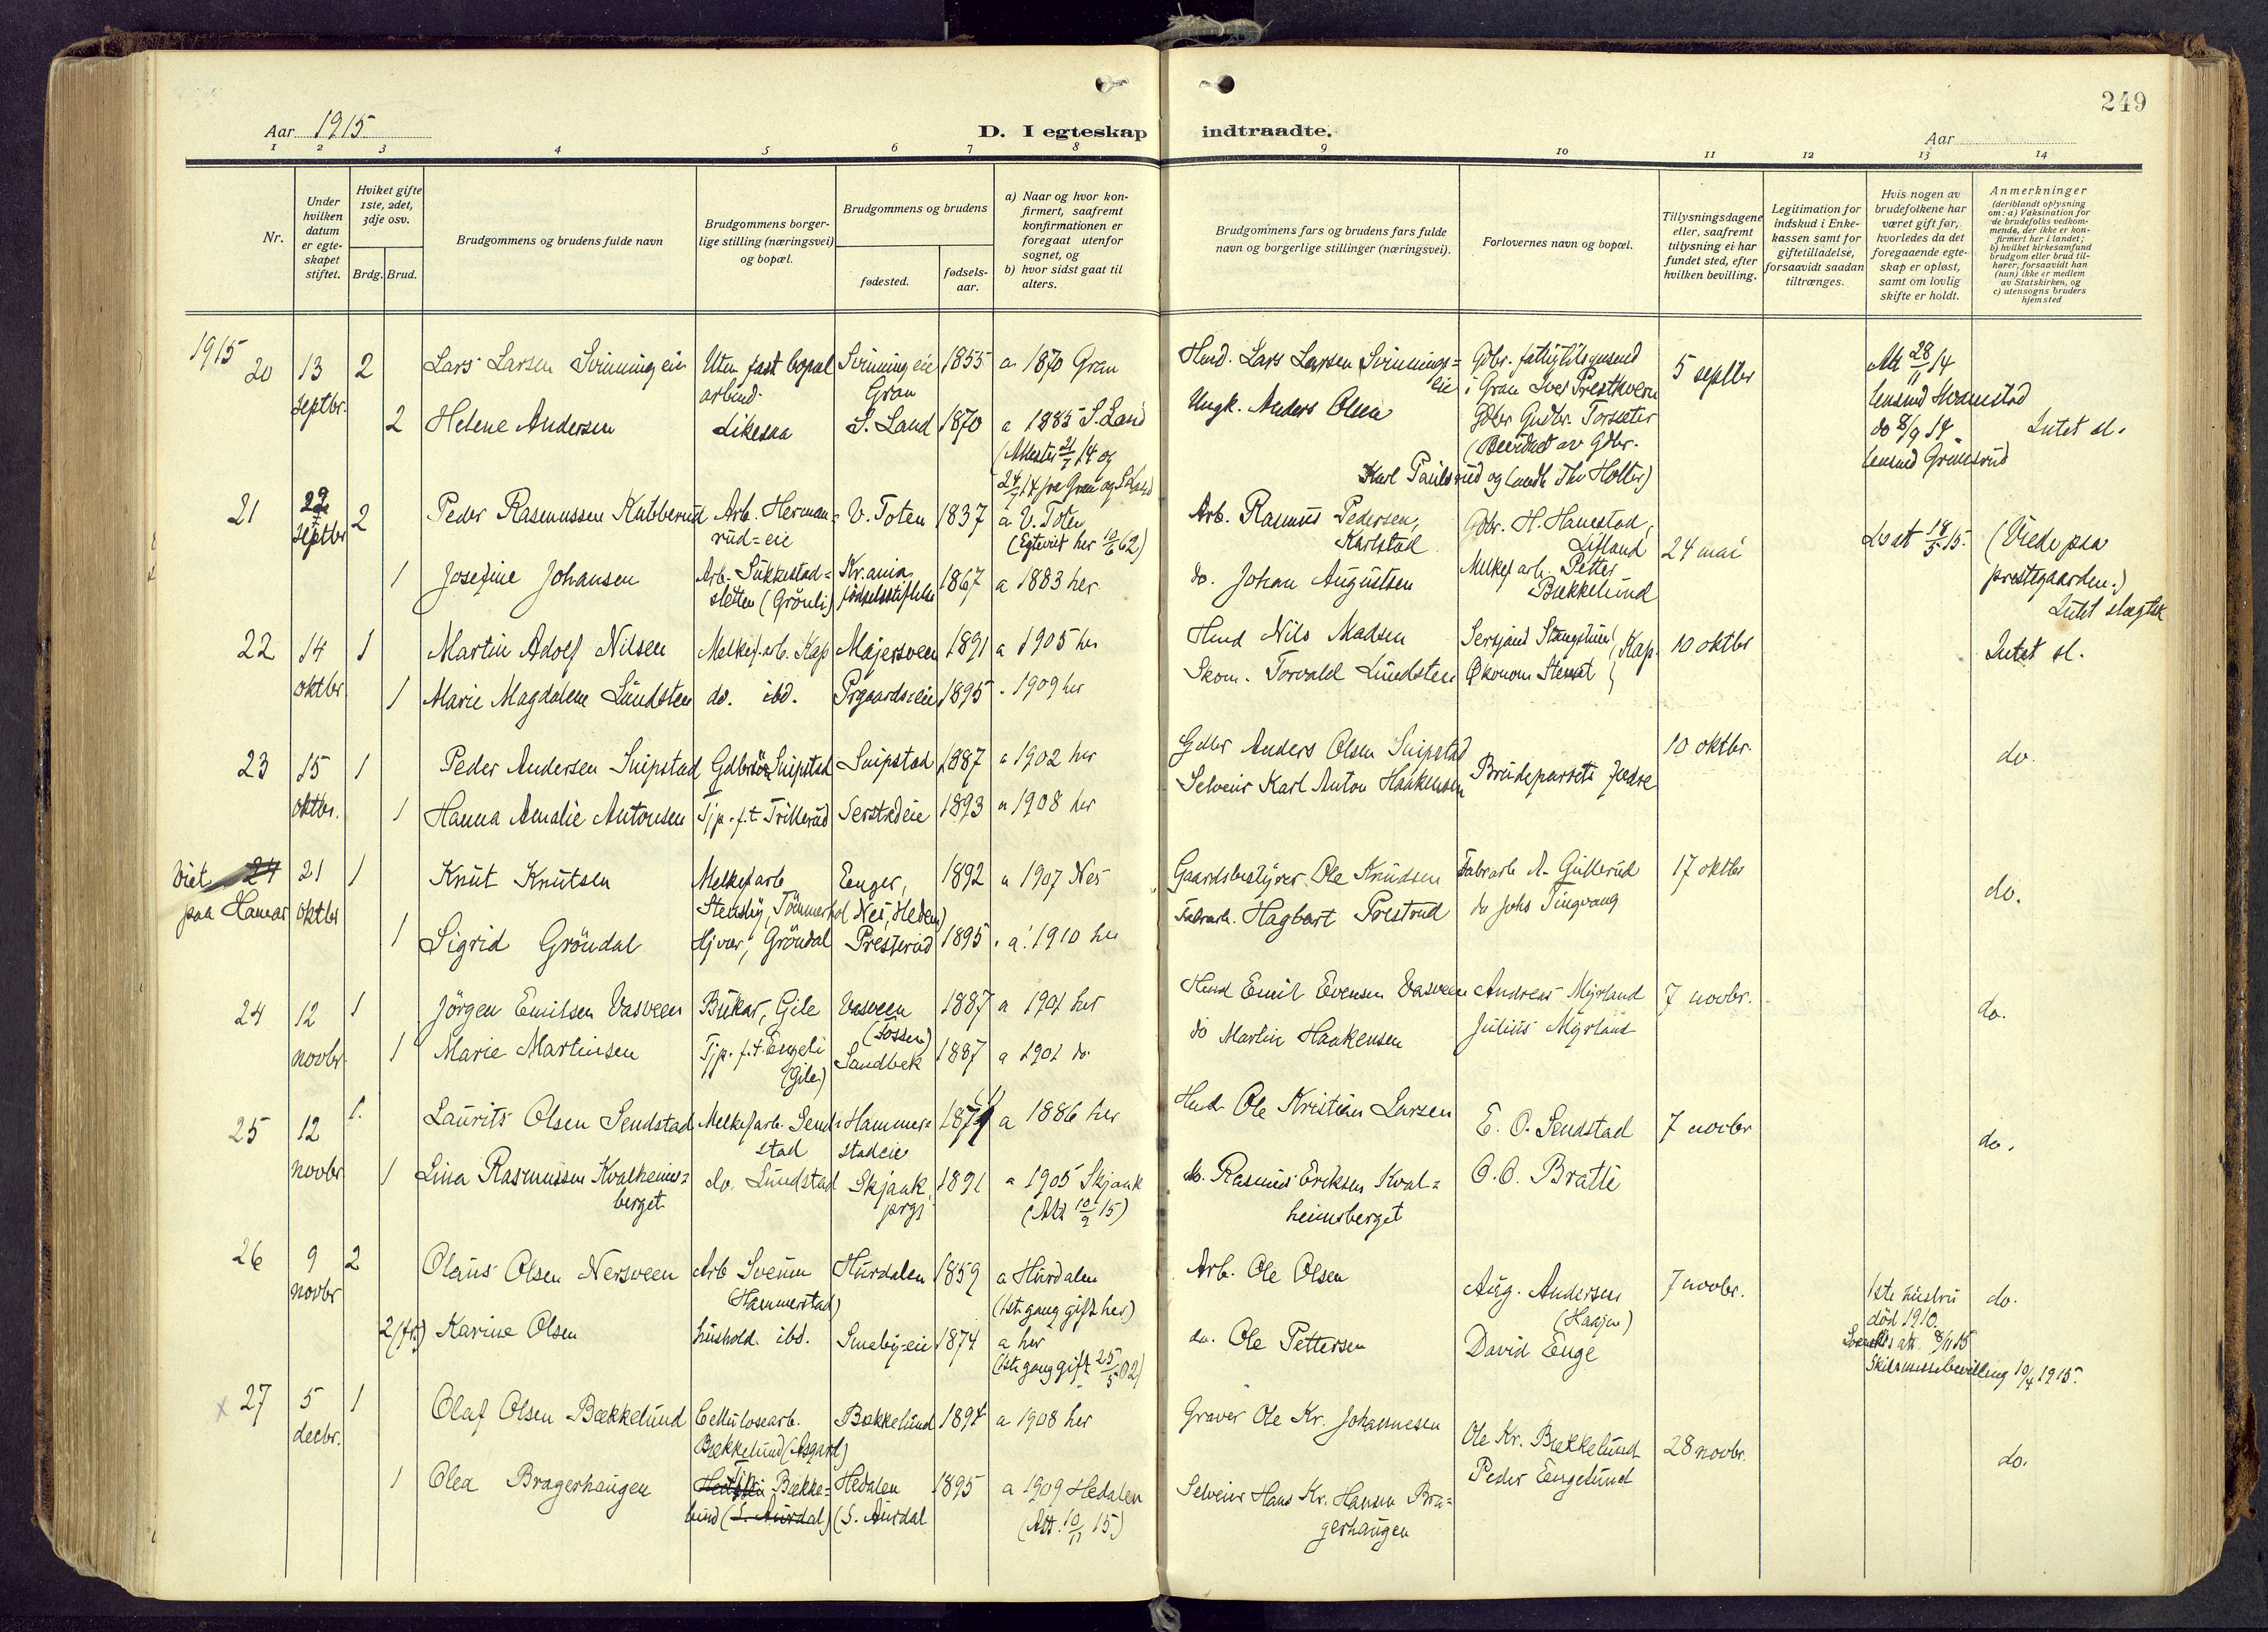 249
Aar 1915
D. I egteskap indtraadte.
Aar
1 2 3 4 5 6 7 8 9 10 11 12 13 14
Nr.
Under hvilken datum er egteskapet stiftet.
Hviket gifte 1ste, 2det, 3dje osv.
Brdg. Brud.
Brudgommens og brudens fulde navn
Brudgommens borgerlige stilling (næringsvei) og bopæl.
Brudgommens og brudens
fødested.
fødselsaar.
a) Naar og hvor konfirmert, saafremt konfirmationen er foregaat utenfor sognet, og
b) hvor sidst gaat til alters.
Brudgommens fars og brudens fars fulde navn og borgerlige stillinger (næringsvei).
Forlovernes navn og bopæl.
Tillysningsdagene eller, saafremt tillysning ei har fundet sted, efter hvilken bevilling.
Legitimation for indskud i Enkekassen samt for giftetilladelse, forsaavidt saadan tiltrænges.
Hvis nogen av brudefolkene har været gift før, hvorledes da det foregaaende egteskap er opløst, samt om lovlig skifte er holdt.
Anmerkninger (deriblandt oplysning om: a) Vaksination for de brudefolks vedkommende, der ikke er konfirmert her i landet; b) hvilket kirkesamfund brudgom eller brud tilhører, forsaavidt han (hun) ikke er medlem av Statskirken, og c) utensogns bruders hjemsted
1915
20 13 septbr. 2 Lars Larsen Svinningeie Uten fast bopæl arbeid. Svinningeie Gran 1855 a 1870 Gran Husd. Lars Larsen Svinningseie Gdbr. fattigtilsynsmd i Gran Iver Præsthvern 5 septbr Att 28/11 14 lensmd Hvamstad
2 Helene Andersen Likesaa S. Land 1870 a 1885 S. Land Ungk. Anders Olsen Gdbr Gudbr. Torsæter do 8/9 14 lensmd Grimsrud Intet sl.
(Attester 21/7 14 og 24/7 14 fra Gran og S Land) (Beevidnet av Gdbr. Karl Paulsrud og landh. Thv Holter)
21 22 septbr 2 Peder Rasmussen Kubberud Arb. Hermanrud=eie V. Toten 1837 a V. Toten (Egteviet her 10/6 62) Arb. Rasmus Pedersen, Karlstad Gdbr. H. Hanestad, Lifland 24 mai Ls at 18/5 15. (Viede paa prestegaarden.)
1 Josefine Johansen Arb. Sukkestad=sletten (Grönli) Kr.ania fødselsstiftelse 1867 a 1883 her do. Johan Augustsen Melkef arb. Petter Bækkelund Intet slegtsk
22 14 oktbr 1 Martin Adolf Nilsen Melkef.arb. Kap Majersveen 1891 a 1905 her Husd Nils Madsen Sersjant Stangstuen Kap. 10 oktbr Intet sl.
1 Marie Magdalene Lundsten do. ibd. Prgaardseie 1895 " 1909 her Skom. Torvald Lundsten Økonom Stensæt
23 15 oktbr. 1 Peder Andersen Snipstad Gdbrsön Snipstad Snipstad 1887 a 1902 her Gdbr Anders Olsen Snipstad Brudeparrets fædre 10 oktbr. do.
1 Hanna Amalie Antonsen Tjp. f.t. Trillerud 1893 a 1908 her Selveier Karl Anton Haakensen
Viet paa Hamar 24 21 oktbr 1 Knut Knutsen Melkef arb Stensby, Tömmerhol Eenger, Nes, Hedem) 1892 a 1907 Nes Gaardsbestyrer Ole Knudsen Fabrarb A. Gullerud 17 oktbr do.
1 Sigrid Gröndal Hjvær, Gröndal Presterud 1895 a 1910 her Fabrarb. Hagbart Prestrud do Johs Tingvang
24 12 novbr 1 Jörgen Emilsen Vasveen Bukar, Gile Vasveen (Fossen) 1887 a 1901 her Husd Emil Evensen Vasveen Andreas Myrland 7 novbr. do.
1 Marie Martinsen Tjp. f.t. Engeli (Gile) Sandbek 1887 a 1901 do. do Martin Haakensen Julius Myrland
25 12 novbr 1. Laurits Olsen Sendstad Melkef arb. Sendstad Hammerstadeie 1871 a 1886 her Husd Ole Kristian Larsen E. O. Sendstad 7 novbr do.
1 Lina Rasmussen Kvalheimsberget do. Lundstad Skjaak prgj 1891 a 1905 Skjaak (Att 10/9 15) do. Rasmus Eriksen Kvalheimsberget O. O. Bratli
26 9 novbr 2 Olaus Olsen Nersveen Arb Sveum (Hammerstad) Hurdalen 1859 a Hurdalen (1ste gang gift her) Arb. Ole Olsen Aug. Andersen (Haajen) 7 novbr. 1ste hustru död 1910. do.
2 (fr.) Karine Olsen hushold. ibd. Smebyeie 1874 a her (1ste gang gift 25/5 02) do. Ole Pettersen David Enge Skilsmissebevilling 10/4 1915.
x 27 5 decbr. 1 Olaf Olsen Bækkelund Cellulosearb. Bækkelund (Asgard) Bækkelund 1894 a 1908 her Graver Ole Kr. Johannesen Ole Kr. Bækkelund 28 novbr. do.
1 Olea Bragerhaugen Tjp. Bækkelund (S. Aurdal) Hedalen (S. Aurdal 1895 a 1909 Hedalen (Att. 10/11 15) Selveier Hans Kr. Hansen Bragerhaugen Peder Engelund